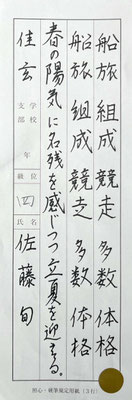 船旅 組成 競走 多数 体格
船旅 組成 競走 多数 体格
春の陽気に名残を感じつつ立夏を迎える。
佳玄 学校 支部 年 級位 四 氏名 佐藤旬
硬心・硬筆規定用紙(3行)